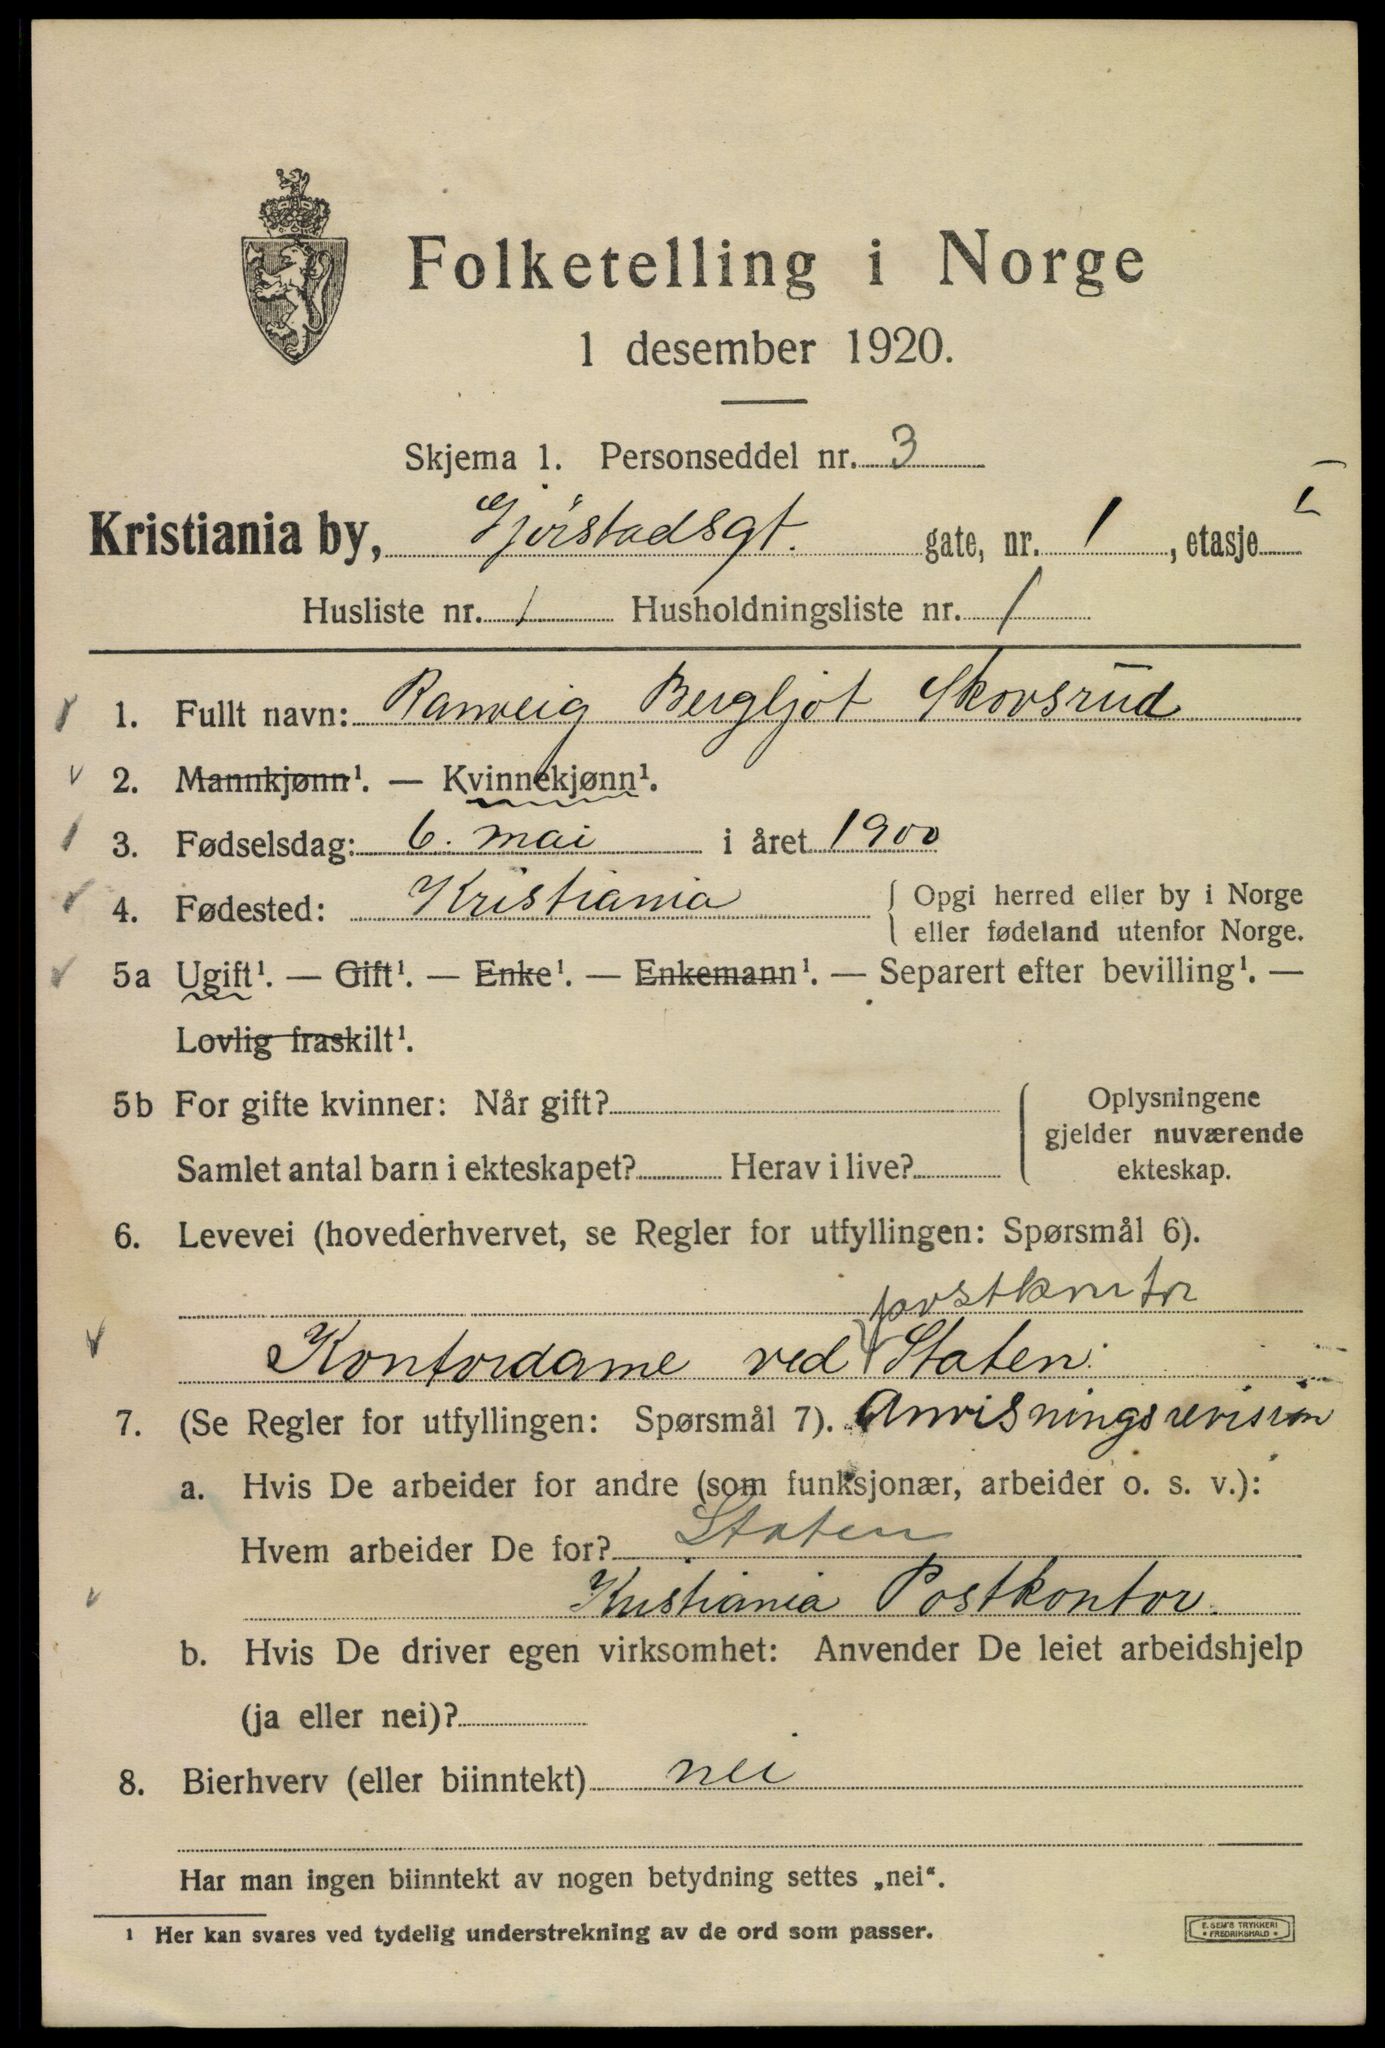 Folketelling i Norge
1 desember 1920.
Skjema 1. Personseddel nr. 3
Kristiania by, Gjörstadsgt. gate, nr. 1, etasje I
Husliste nr. 1 Husholdningsliste nr. 1
1. Fullt navn: Ranveig Bergljot Skovsrud
2. Mannkjønn¹. — Kvinnekjønn¹.
3. Fødselsdag: 6. mai i året 1900
4. Fødested: Kristiania { Opgi herred eller by i Norge
eller fødeland utenfor Norge.
5a Ugift¹. — Gift¹. — Enke¹. — Enkemann¹. — Separert efter bevilling¹. —
Lovlig fraskilt¹.
5b For gifte kvinner: Når gift? { Oplysningene
gjelder nuværende
Samlet antal barn i ekteskapet? Herav i live? ekteskap.
6. Levevei (hovederhvervet, se Regler for utfyllingen: Spørsmål 6).
postkontor
Kontordame ved Staten.
7. (Se Regler for utfyllingen: Spørsmål 7). Anvisningsrevision
a. Hvis De arbeider for andre (som funksjonær, arbeider o. s. v.):
Hvem arbeider De for? Staten
Kristiania Postkontor.
b. Hvis De driver egen virksomhet: Anvender De leiet arbeidshjelp
(ja eller nei)?
8. Bierhverv (eller biinntekt) nei
Har man ingen biinntekt av nogen betydning settes „nei“.
¹ Her kan svares ved tydelig understrekning av de ord som passer.
E. SEM'S TRYKKERI
• FREDRIKSHALD •